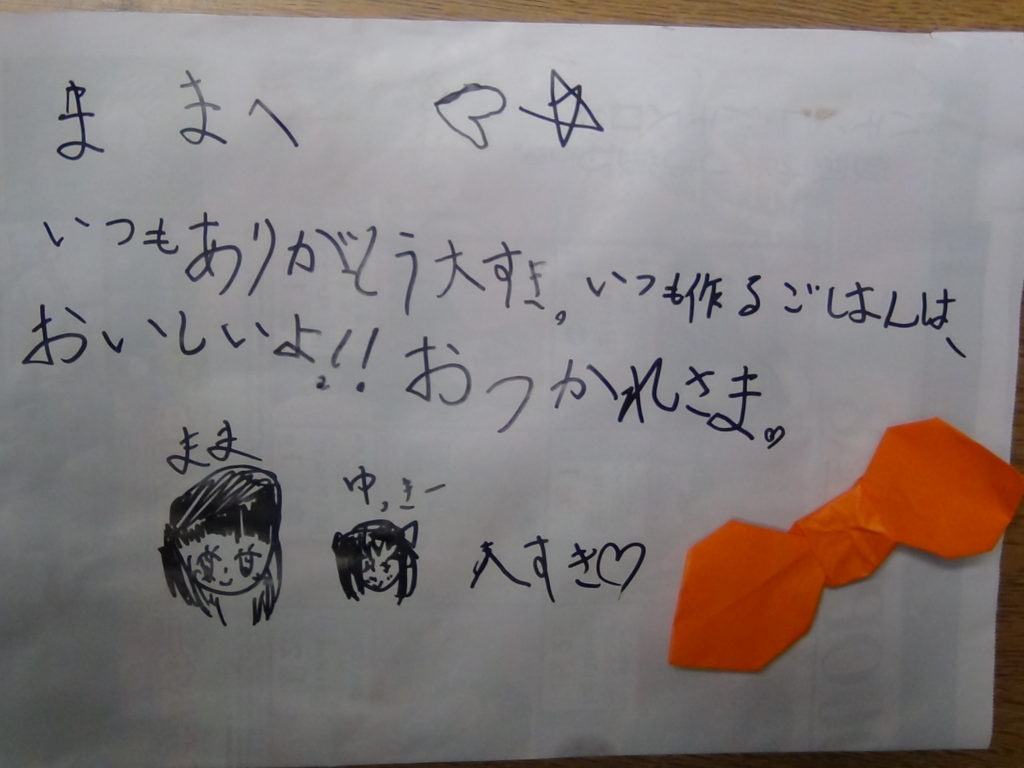 ままへ ♡☆
いつもありがとう大すき。いつも作るごはんは、
おいしいよ!! おつかれさま。♡
まま
ゆっきー
大すき♡